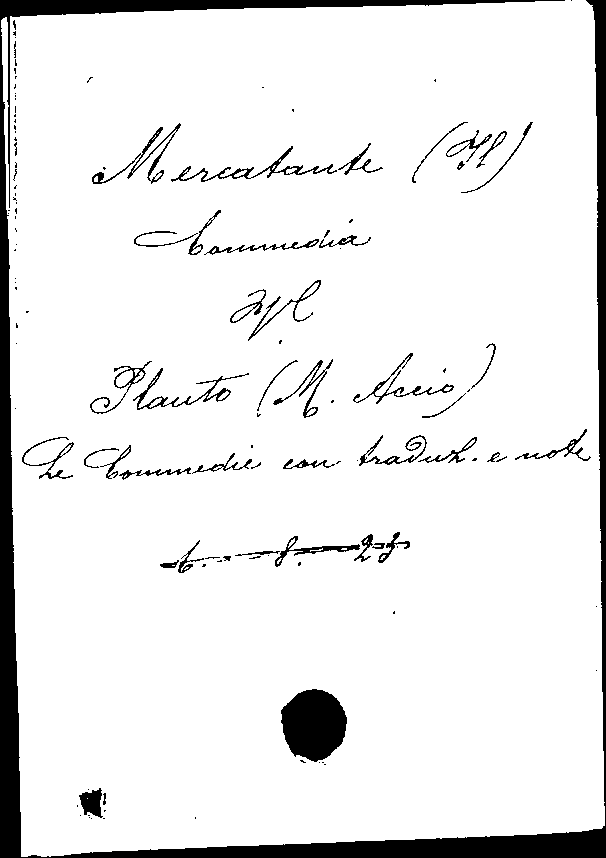 Mercatante (Il)
Commedia
Plauto (M. Accio)
Le Commedie con traduz. e note
6. - 8. 23